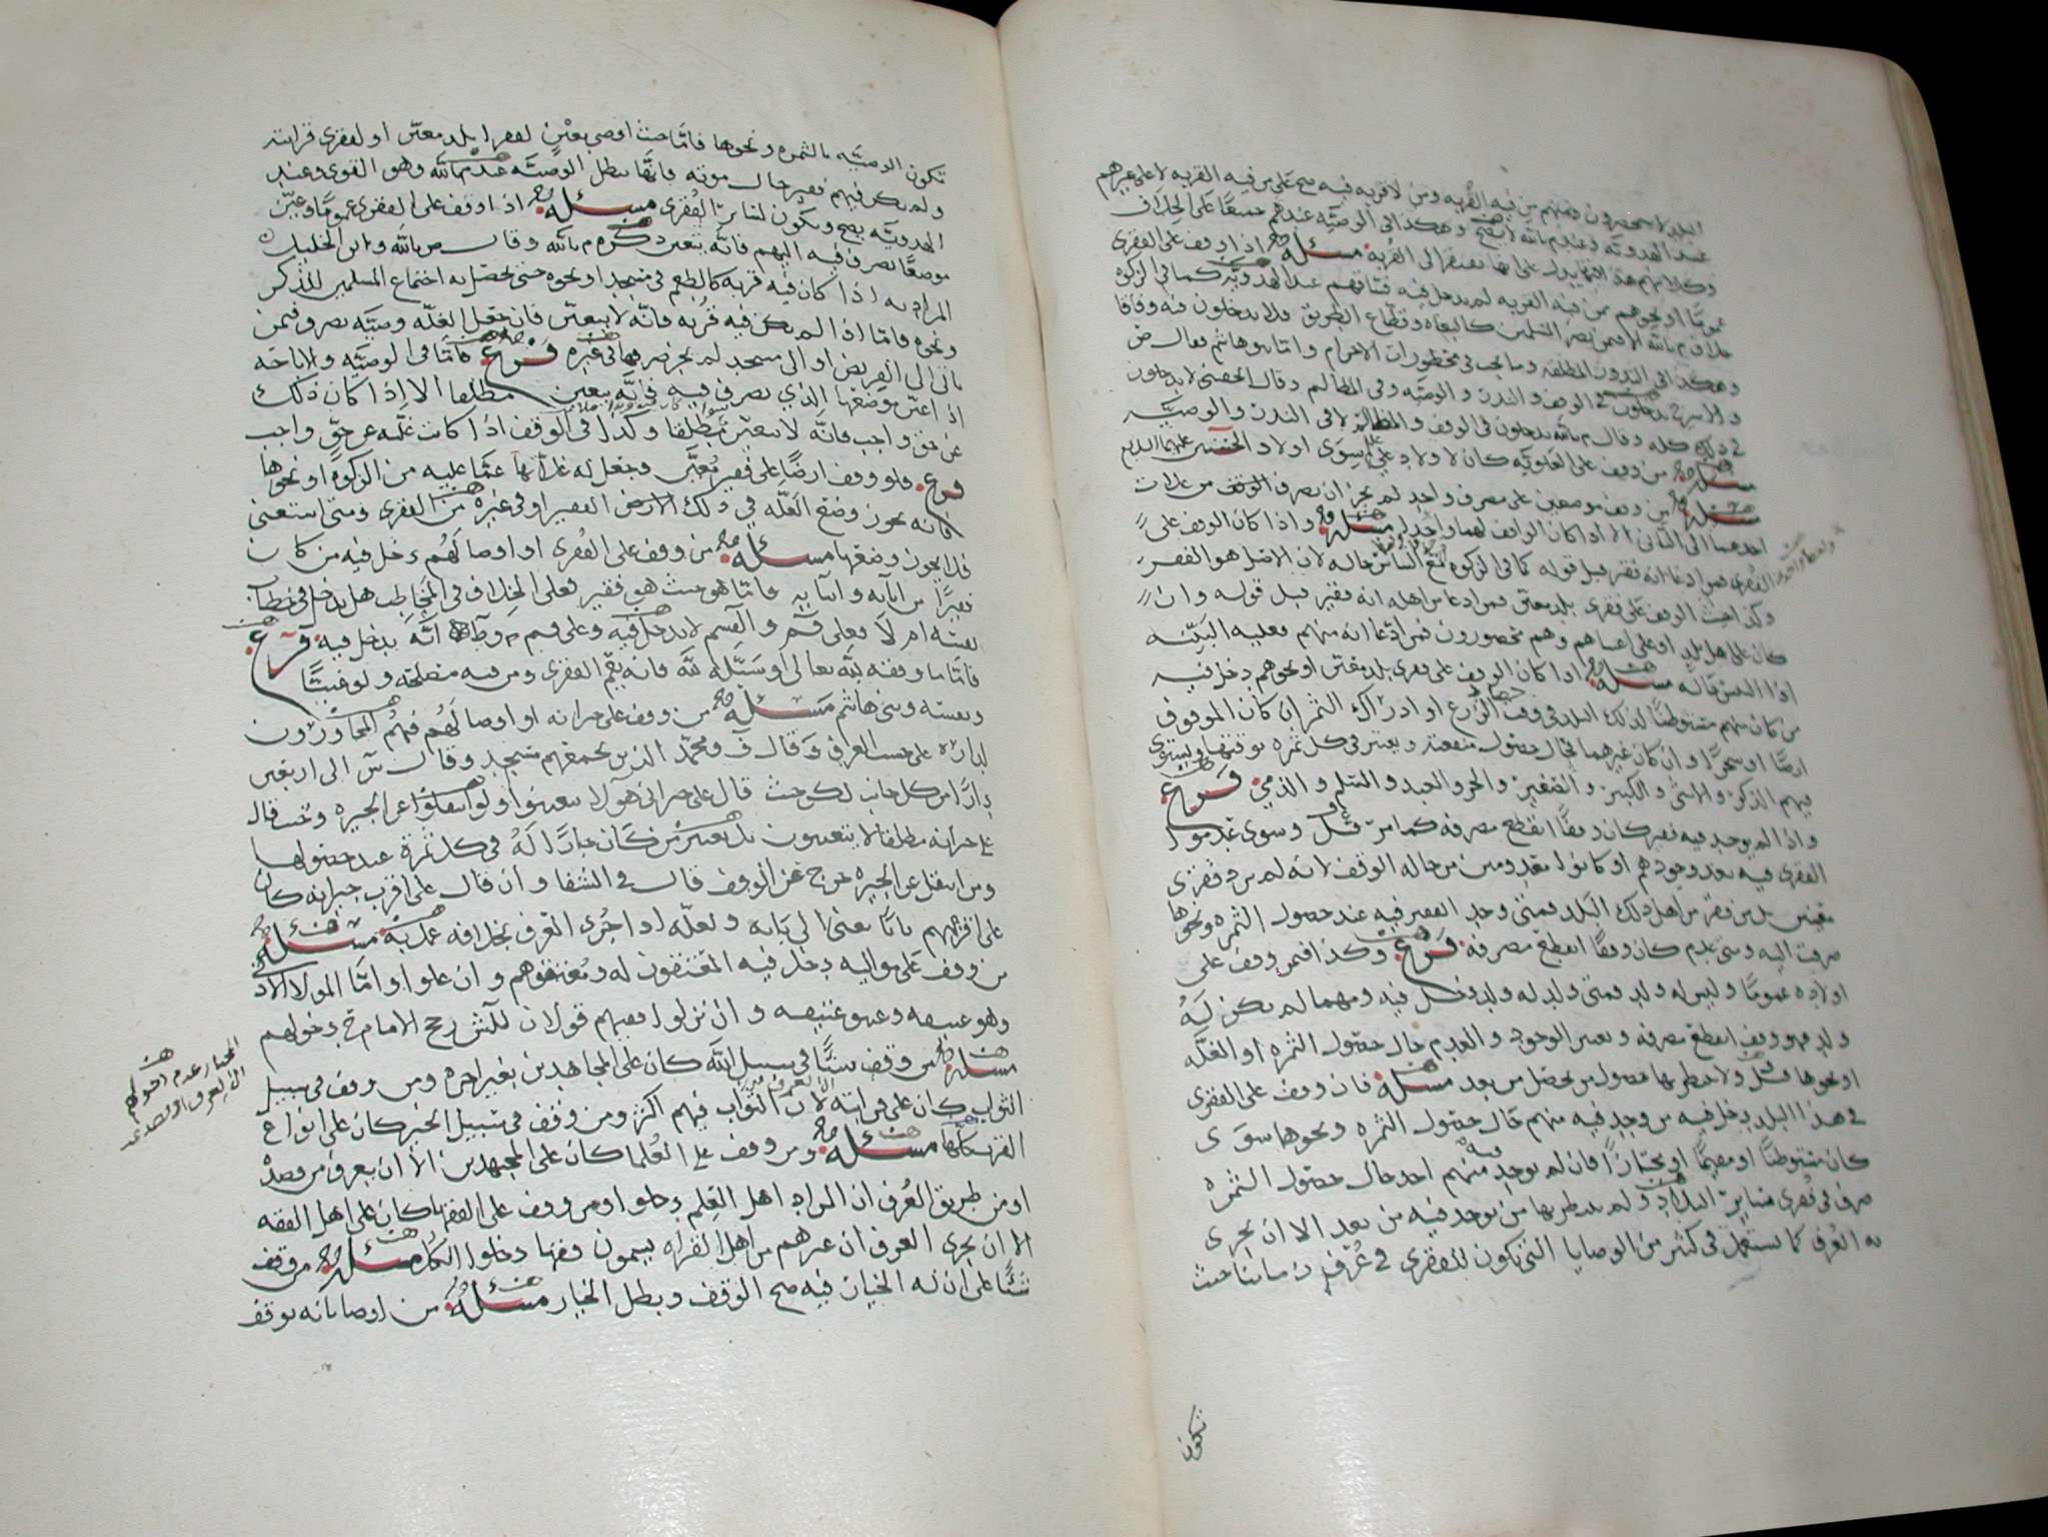 البلد لا ينحصرون وفيهم من فيه القربه ومن لا قربه فيه صح على من فيه القربه لا على غيرهم
عند الهدويه وعند م بالله لا يصح وهكذا في الوصيه عندهم جميعا على الخلاف
وكلامهم هذا فيهما يدل على انها تفتقر الى القربه مسئله اذا وقف على الفقرى
عموما او نحوهم ممن فيه القربه لم يدخل فيه فساقهم عند الهدويه كما في الزكوه
خلاف م بالله الا فيمن يضر المسلمين كالبغاه وقطاع الطريق فلا يدخلون فيه وفاقا
وهكذا في النذور المطلقه وما يجب في محظورات الاحرام واما بنو هاشم فقال ض
يدخلون في الوقف والنذر والوصيه وفي المظالم وقال الحقيني لا يدخلون
في ذلك كله وقال م بالله يدخلون في الوقف والمظالم لا في النذر والوصيه
مسئله من وقف على العلويه كان لاولاد علي سوى اولاد الحسنين عليهما السلام
مسئله من وقف موضعين على مصرف واحد لم يجز ان يصرف الوقف من غلات
احدهما الى الثاني الا اذا كان الواقف لهما واحدا مسئله واذا كان الوقف على
الفقرى فمن ادعا انه فقير قبل قوله كما في الزكوه مع التباس حاله لان الاصل هو الفقر
وكذا حيث الوقف على فقرى بلد معين فمن ادعا من اهله انه فقير قبل قوله وان
كان على اهل بلد او على اغنياهم وهم محصورون فمن ادعا انه منهم فعليه البينه
اذا التبس حاله مسئله اذا كان الوقف على فقرى بلد معين او نحوهم دخل فيه
من كان منهم مستوطنا لذلك البلد في وقت حصاد الزرع او ادراك الثمر ان كان الموقوف
ارضا او شجرا وان كان غيرهما فحال حصول منفعته ويعتبر في كل ثمره بوقتها ويستوى
فيهم الذكر والانثى والكبير والصغير والحر والعبد والمسلم والذمي فرع
واذا لم يوجد فيه فقير كان وقفا انقطع مصرفه كما مر قبل وسوى عدموا
الفقرى فيه بعد وجودهم او كانوا معدومين من حاله الوقف لانه لم يرد فقرى
معينين بل من فقر من اهل ذلك البلد فمتى وجد الفقير فيه عند حصول الثمره ونحوها
صرفت اليه ومتى عدم كان وقفا انقطع مصرفه فرع وكذا فيمن وقف على
اولاده عموما وليس له ولد فمتى ولد له ولد دخل فيه ومهما لم يكن له
ولد فهو وقف انقطع مصرفه ويعتبر الوجود والعدم حال حصول الثمره او الغله
او نحوها قبل ولا ينتظر بها حصول من يحصل من بعد مسئله فان وقف على الفقرى
في هذا البلد دخل فيه من وجد فيه منهم حال حصول الثمره ونحوها سوى
كان مستوطنا او مقيما او مجتازا فان لم يوجد فيه منهم احد حال حصول الثمره
صرف في فقرى سائر البلاد ولم ينتظر بها من يوجد فيه من بعد الا ان يجرى
به العرف كما يستعمل في كثير من الوصايا التي تكون للفقرى في عرف زماننا حيث
تكون
تكون الوصيه بالثمره ونحوها فاما حيث اوصى بعين لفقرا بلد معين او لفقرى قرابته
ولم يكن فيهم فقير حال موته فانها تبطل الوصيه عند م بالله وهو القوي وعند
الهدويه يصح ويكون لسائر الفقرى مسئله اذا وقف على الفقرى عموما وعين
موضعا يصرف فيه اليهم فانه يتعين ذكره م بالله وقال ص بالله وابن الخليل
المراد به اذا كان فيه قربه كالطعم في مسجد او نحوه حتى يحصل به اجتماع المسلمين للذكر
ونحوه فاما اذا لم يكن فيه قربه فانه لا يتعين فان جعل الغله وصيه يصرف فيمن
ياتي الى القريض او الى مسجد لم يجز صرفها في غيره فرع فاما في الوصيه والاباحه
اذا عين موضعها الذي يصرف فيه فانه يتعين مطلقا الا اذا كان ذلك
عن حق واجب فانه لا يتعين مطلقا وكذا في الوقف اذا كانت غلته عن حق واجب
فرع ولو وقف ارضا على فقير معين وجعل له غلاتها عما عليه من الزكوه او نحوها
فانه يجوز وضع الغله في ذلك الفقير او في غيره من الفقرى ومتى استغنى
فلا يجوز وضعها مسئله من وقف على الفقرى او اوصا لهم دخل فيه من كان
فقيرا من آبائه وابنائه فاما هو حيث هو فقير فعلى الخلاف في المخاطب هل يدخل في خطاب
نفسه ام لا فعلى ق م والقسم لا يدخل فيه وعلى قسم م و ط انه يدخل فيه فرع
فاما ما وقفه لله تعالى او سبله لله فانه يعم الفقرى ومن فيه مصلحه ولو غنيا
ونفسه وبني هاشم مسئله من وقف على جيرانه او اوصا لهم فهم المجاورون
لداره على حسب العرف وقال ف ومحمد الذين يجمعهم مسجد وقال ش الى اربعين
دارا من كل جانب لكن حيث قال على جيراني هولا تعينوا ولو انتقلوا عن الجيره وحيث قال
على جيرانه مطلقا لا يتعينون بل يعتبر من كان جارا له في كل ثمرة عند حصولها
ومن انتقل عن الجيره خرج عن الوقف قال في الشفا وان قال على اقرب جيرانه كان
على اقربهم بابا يعني الى بابه ولعله اذا جرى العرف بخلافه عمل به مسئله
من وقف على مواليه دخل فيه المعتقون له ومعتقوهم وان علوا واما المولا الادنى
وهو عتيقه وعتيق عتيقه وان نزلوا ففيهم قولان للش رجح الامام ح دخولهم
مسئله من وقف شيا في سبيل الله كان على المجاهدين بغير اجره ومن وقف في سبيل
الثواب كان على قرابته لان الثواب فيهم اكثر ومن وقف في سبيل الخير كان على انواع
القرب كلها مسئله ومن وقف على العلما كان على المجتهدين الا ان يعرف من قصده
او من طريق العرف ان المراد اهل العلم دخلوا ومن وقف على الفقها كان على اهل الفقه
الا ان يجرى العرف ان غيرهم من اهل القراه يسمون فقها دخلوا الكل مسئله من وقف
شيا على ان له الخيار فيه صح الوقف وبطل الخيار مسئله من اوصا بانه يوقف
المختار عدم دخولهم
الا لعرف او قصد